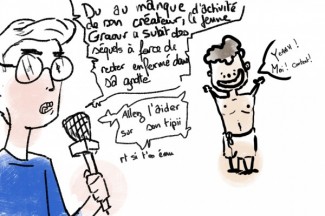 Du au manque d'activité
de son créateur, le jeune
Graour a subit des
séquels à force de
rester enfermé dans
sa grotte
Allez l'aider
sur son tipii
rt si t'es ému
Yeaah!
Moi! Content!